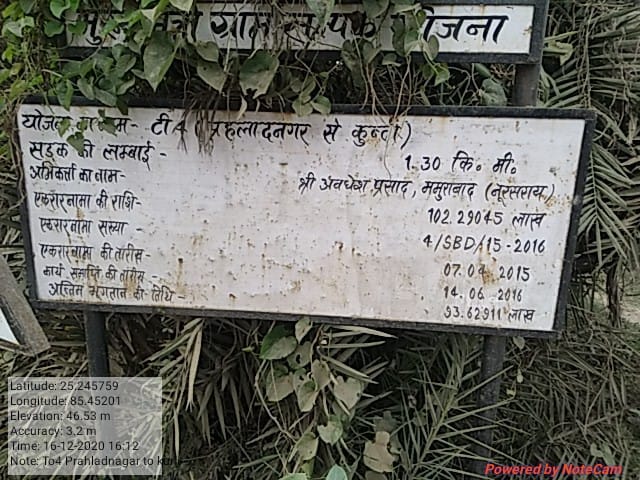 मुख्यमंत्री ग्राम सम्पर्क योजना
योजना का नाम- टी4 (प्रहलादनगर से कुन्दी)
सड़क की लम्बाई- 1.30 कि. मी.
अभिकर्त्ता का नाम- श्री अवधेश प्रसाद, ममुराबाद (नूरसराय)
एकरारनामा की राशि- 102.29045 लाख
एकरारनामा संख्या - 4/SBD/15-2016
एकरारनामा की तारीख- 2015
कार्य समाप्ति की तारीख- 14.06.2016
अन्तिम भुगतान की तिथि- 93.62911 लाख
Latitude: 25.245759
Longitude: 85.45201
Elevation: 46.53 m
Accuracy: 3.2 m
Time: 16-12-2020 16:12
Note: To4 Prahladnagar to
Powered by NoteCam